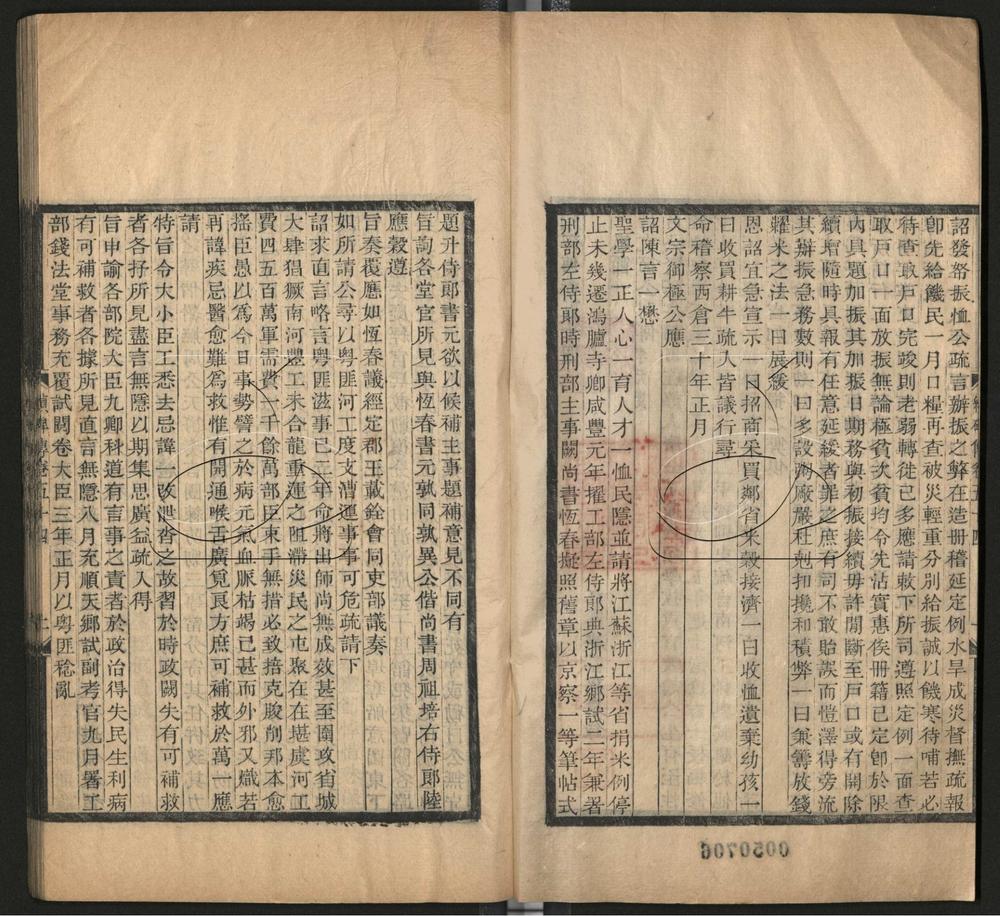 詔發帑振恤公疏言辦振之弊在造册稽延定例水旱成災督撫疏報
卽先給饑民一月口糧再查被災輕重分別給振誠以饑寒待哺若必
待查敢戶口完竣則老弱轉徙已多應請敕下所司遵照定例一面查
取戶口一面放振無論極貧次貧均令先沾實惠俟册籍已定卽於限
內具題加振其加振日期務與初振接續毋許閒斷至戶口或有開除
續增隨時具報有任意延緩者罪之庶有司不敢貽誤而愷澤得旁流
其辦振急務數則一曰多設兩廠嚴杜剋扣攙和積弊一曰兼籌放錢
糶米之法一曰展緩
恩詔宜急宣示一曰招商采買鄰省米穀接濟一曰收恤遺棄幼孩一
曰收買耕牛疏入皆議行尋
命稽察西倉三十年正月
文宗御極公應
詔陳言一懋
聖學一正人心一育人才一恤民隱並請將江蘇浙江等省捐米例停
止未幾遷鴻臚寺卿咸豐元年擢工部左侍郎典浙江鄉試二年兼署
刑部左侍郎時刑部主事闕尚書恆春擬照舊章以京察一等筆帖式
題升侍郎書元欲以候補主事題補意見不同有
旨詢各堂官所見與恆春書元孰同孰異公偕尚書周祖培右侍郎陸
應穀遵
旨奏覆應如恆春議經定郡王載銓會同吏部議奏
如所請公尋以粵匪河工度支漕運事事可危疏請下
詔求直言略言粵匪滋事已三年命將出師尚無成效甚至圍攻省城
大肆猖獗南河豐工未合龍重運之阻滯災民之屯聚在在堪虞河工
費四五百萬軍需費一千餘萬部臣束手無措必致掊克朘削邦本愈
搖臣愚以爲今日事勢譬之於病元氣血脈枯竭已甚而外邪又熾若
再諱疾忌醫愈難爲救惟有開通喉舌廣覓良方庶可補救於萬一應
請
特旨令大小臣工悉去忌諱一改泄沓之故習於時政闕失有可補救
者各抒所見盡言無隱以期集思廣益疏入得
旨申諭各部院大臣九卿科道有言事之責者於政治得失民生利病
有可補救者各據所見直言無隱八月充順天鄉試副考官九月署工
部錢法堂事務充覆試閱卷大臣三年正月以粵匪稔亂
0050706